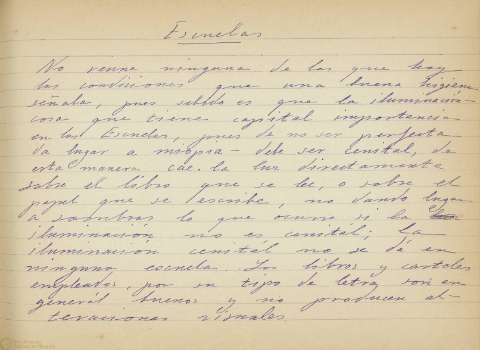 Escuelas
No reune ninguna de las que hay
las condiciones que una buena higiene
señala, pues sabido es que la iluminación-
cosa que tiene capital importancia
en las Escuelas, pues de no ser perfecta
da lugar a miopia- debe ser cenital, de
esta manera cae la luz directamente
sobre el libro que se lee, o sobre el
papel que se escribe, no dando lugar
a sombras lo que ocurre si la
iluminación no es cenital; La
iluminación cenitál no se dá en
ninguna escuela. Los libros y carteles
empleados, por su tipo de letra son en
generál buenos y no producen al-
teraciones visuales.